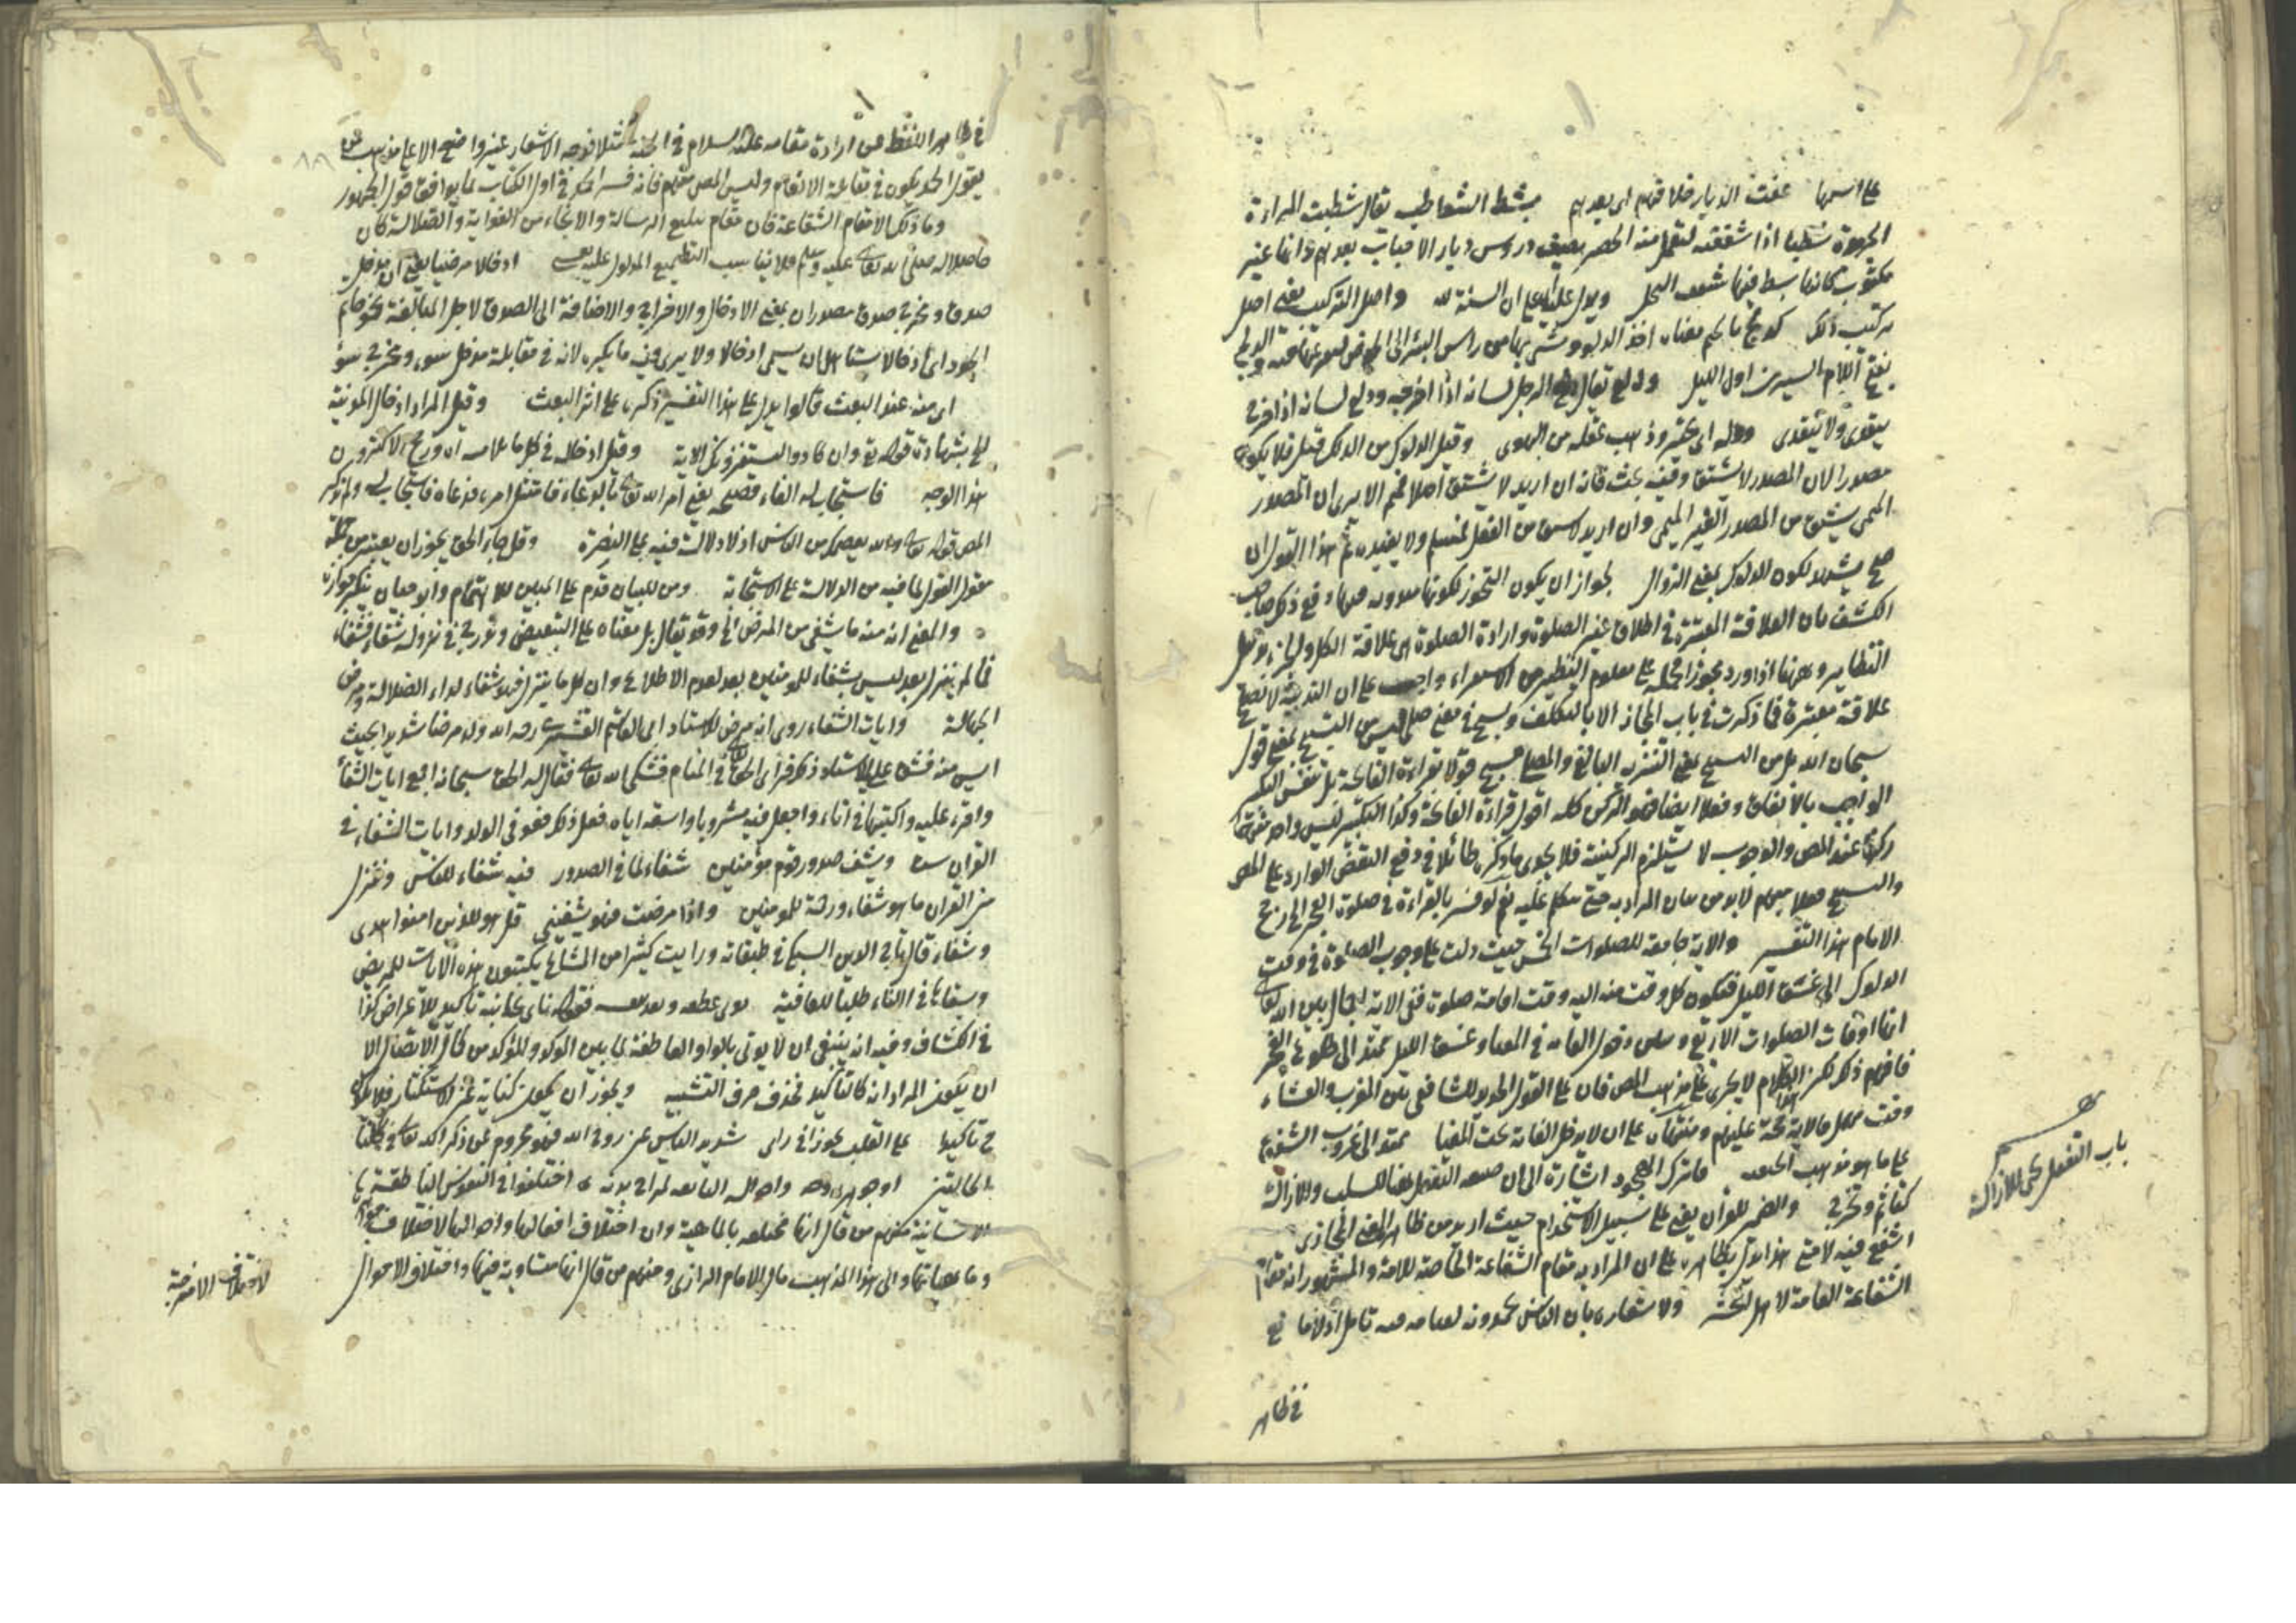 على اسمها عفت الديار خلافهم اى بعدهم بشط الشواطب يقال شطبت المراءة
الجريدة شطبا اذا شققته لتعمل منه الحصر يصف دروس ديار الاحباب بعدهم وانها غير
مكنوسة كانما بسط فيها سعف النخل ويدل عليه على ان السنة لله واصل التركيب يعنى اصل
مركب دلك كدلج بالجيم معناه اخذ الدلو ومشى بها من راس البئر الى الحوض ليفرغها فيه والدلج
بفتح اللام السير من اول الليل ودلع يقال دلع الرجل لسانه اذا اخرجه ودلع لسانه اذا خرج
يتعدى ولا يتعدى ودله اى تحير وذهب عقله من الهوى وقيل الدلوك من الدلك قيل فلا يكون
مصدرا لان المصدر لا يشتق وفيه بحث فانه ان اريد لا يشتق اصلا فمم الا يرى ان المصدر
الميمى يشتق من المصدر الغير الميمى وان اريد لا يشتق من الفعل فمسلم ولا يفيده ثم هذا القول ان
صح يشهد لكون الدلوك بمعنى الزوال لجواز ان يكون التجوز لكونها وقع ذكر صاحب
الكشف بان العلاقة المعتبرة فى اطلاق غير الصلوة وارادة الصلوة هى علاقة الكل والجزء
النظاير وغيرها اذا ورد مجوزا محمله على معلوم النظير من الاستقراء على ان الندبية لا تصلح
علاقة معتبرة فما ذكرت فى باب المجاز الا بالتكلف وسبح فى معنى صلى ليس من التسبيح بمعنى قول
سبحان الله بل من التسبيح بمعنى التنزيه البالغ والمصلى مسبح قولا بقراءة الفاتحة بل بنفس التكبير
الواجب بالاتفاق وفعلا ايضا فهو الركن كله اقول قراءة الفاتحة وكذا التكبير ليس واحد منهما
ركنا عند المص والوجوب لا يستلزم الركنية فلا يجدى ما ذكره طائلا فى دفع النقض الوارد على المص
والتسبيح فعلا مبهم لا بد من بيان المراد به حتى يتكلم عليه نعم لو فسر بالقراءة فى صلوة الفجر الى رجح
الامام هذا التفسير والاية جامعة للصلوات الخمس حيث دلت على وجوب الصلوة فى وقت
الدلوك الى غسق الليل فيكون كل وقت منه اليه وقت اقامة صلوة ففى الاية اجمال بين الله تعالى
انها اوقات الصلوات الاربع ودخول الغاية فى المغيا وغسق الليل يمتد الى طلوع الفجر
فافهم ذكر لكن الكلام لا يجرى على مذهب المص فان على القول الجديد للشافعى بين المغرب والعشاء
وقت مهمل فالاية حجة عليهم ومنتهاه على ان لا يدخل الغاية تحت المغيا يمتد الى غروب الشفق
على ما هو مذهب الحنفية فاترك الهجود اشارة الى ان صيغة التفعيل هنا للسلب والازالة
كتأثم وتحرج والضمير للقرآن يعنى على سبيل الاستخدام حيث اريد من ظاهره المعنى المجازى
اشفع فيه لامتى هذا يدل بظاهره على ان المراد به مقام الشفاعة الخاصة للامة والمشهور انه مقام
الشفاعة العامة لاهل المحشر ولا شعاره بان الناس يحمدونه لقيامه فيه تامل اذ لا مانع
فى ظاهر
باب التفعل يجئ للازالة
فى ظاهر اللفظ عن ارادة مقامه عليه السلام فى الجنة مثلا فوجه الاشعار غير واضح الا على مذهب من
يقول الحمد يكون فى مقابلة الانعام وليس المص منهم فانه فسر الحمد فى اول الكتاب بما يوافق قول الجمهور
وما ذلك الا مقام الشفاعة فان مقام تبليغ الرسالة والانجاء من الغواية والضلالة كان
حاصلا له صلى الله تعالى عليه وسلم فلا يناسب التطميع المدلول عليه بعسى ادخالا مرضيا يعنى ان مدخل
صدق ومخرج صدق مصدران بمعنى الادخال والاخراج والاضافة الى الصدق لاجل المبالغة نحو حاتم
الجود اى ادخالا يستاهل ان يسمى ادخالا ولا يرى فيه ما يكره لانه فى مقابلة مدخل سوء ومخرج سوء
اى منه عند البعث قالوا يدل على هذا التفسير ذكره على اثر البعث وقيل المراد ادخال المدينة
الخ بشهادة قوله تع وان كادوا ليستفزونك الاية وقيل ادخاله فى كل ما يلابسه ان ورجح الاكثرون
هذا الوجه فاستجاب له الفاء فصيحة يعنى امر الله تعالى بالدعاء فامتثل امره فدعاه فاستجاب له ولم يذكر
المص قوله تعالى والله يعصمك من الناس اذ لا دلالة فيه على النصرة وقل جاء الحق يجوز ان يعتبر من جملة
مقول القول لما فيه من الدلالة على الاستجابة ومن للبيان قدم على المبين للاهتمام وابو حيان ينكر جوازه
والمعنى انه منه ما يشفى من المرض الخ وقد يقال بل معناه على التبعيض وتدرج فى نزوله شفاء فشفاء
فما لم ينزل بعد ليس بشفاء للمؤمنين بعد لعدم الاطلاع وان كل ما ينزل فهو شفاء لداء الضلالة ومرض
الجهالة وايات الشفاء روى انه مرض للاستاد ابى القاسم القشيرى رحمه الله ولد مرضا شديدا بحيث
ايس منه فشق على الاستاد ذكر فراى الحق تعالى فى المنام فشكى الله تعالى فقال له الحق سبحانه اجمع ايات الشفاء
واقره عليه واكتبها فى اناء واجعل فيه مشروبا واسقه اياه ففعل ذكر فعوفى الولد وايات الشفاء فى
القرآن ست ويشف صدور قوم مؤمنين شفاء لما فى الصدور فيه شفاء للناس وننزل
من القرآن ما هو شفاء ورحمة للمؤمنين واذا مرضت فهو يشفينى قل هو للذين امنوا هدى
وشفاء قال تاج الدين السبكى فى طبقاته ورايت كثيرا من المشائخ يكتبون هذه الايات للمريض
ويسقاها فى الاناء طلبا للعافية لوى عطفه فقوله ناى بجانبه تاكيد للاعراض كذا
فى الكشاف وفيه انه ينبغى ان لا يوتى بالواو العاطفة لما بين الموكد والمؤكد من كمال الاتصال الا
ان يكون المراد انه كالتاكيد فحذف حرف التشبيه ويجوز ان يكون كناية عن الاستكبار فلا يكون
ح تاكيدا على القلب كوزا فى راى شديد الياس عن روح الله فهو محروم عن ذكر الله تعالى فى كلتا
الحالتين او جوهر روحه واحواله التابعة لمزاج بدنه اختلفوا فى النفوس الناطقة
الانسانية منهم من قال انها مختلفة بالماهية وان اختلاف افعالها واحوالها لاختلاف
وماهياتها والى هذا المذهب مال الامام الرازى ومنهم من قال انها متساوية فيها واختلاف الاحوال
لاختلاف الامزجة